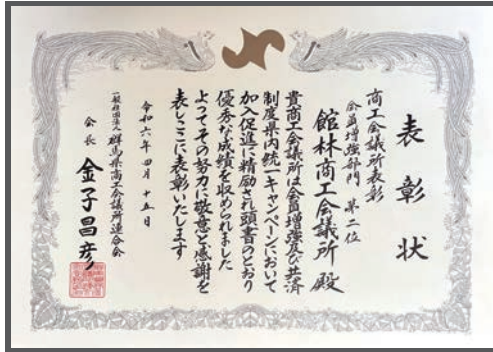 表彰状
商工会議所表彰
会員増強部門 第二位
館林商工会議所 殿
貴商工会議所は会員増強及び共済
制度県内統一キャンペーンにおいて
加入促進に精励され頭書のとおり
優秀な成績を収められました
よってその努力に敬意と感謝を
表しここに表彰いたします
令和六年四月十五日
一般社団法人群馬県商工会議所連合会
会長 金子昌彦